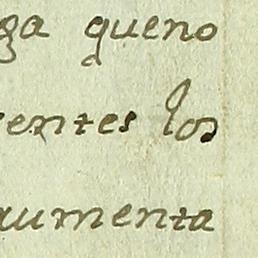 ga queno
entes los
aumenta